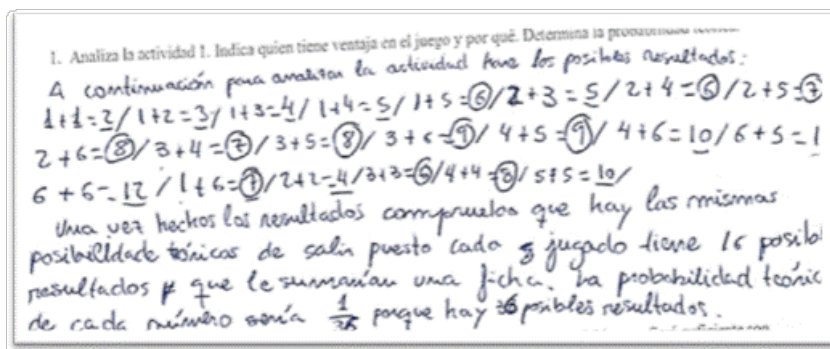 1. Analiza la actividad 1. Indica quien tiene ventaja en el juego y por qué. Determina la probabilidad
A continuación para analizar la actividad hare los posibles resultados:
1+1=2/ 1+2=3/ 1+3=4/ 1+4=5/ 1+5=6/2+3=5/2+4=6/2+5=7
2+6=8/3+4=7/3+5=8/3+6=9/ 4+5=9/ 4+6=10/6+5=1
6+6=12/1+6=7/2+2=4/3+3=6/4+4=8/5+5=10/
Una vez hechos los resultados compruebo que hay las mismas
de salir puesto cada jugado tiene posib
resultados que le sumarían una ficha. La probabilidad teóric
de cada número sería 1/36 porque hay 36 posibles resultados.